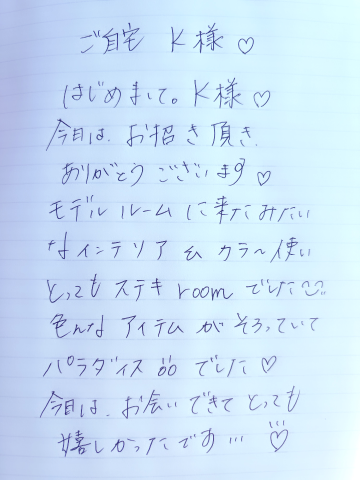 ご自宅 K様♡
はじめまして。K様♡
今日は、お招き頂き、
ありがとうございます♡
モデルルームに来たみたい
なインテリア & カラー使い
とってもステキroomでした
色んなアイテムがそろっていて
パラダイス でした♡
今日は、お会いできてとっても
嬉しかったです…♡